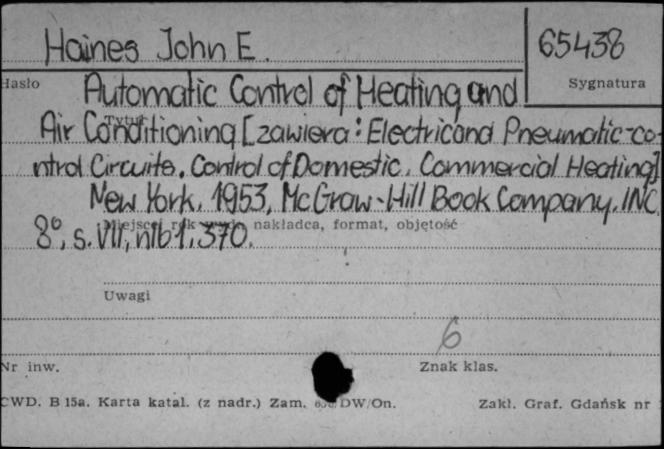 Haines John E.
65438
Hasło
Sygnatura
Automatic Control of Heating and
Tytuł
Air Conditioning [zawiera: Electric and Pneumatic-co-
ntrol Circuits. Control of Domestic. Commercial Heating]
New York. 1953, McGraw-Hill Book Company. INC
8°, s. VII, nlb 1, 370.
Miejsce, rok wyd., nakładca, format, objętość
Uwagi
6
Nr inw.
Znak klas.
CWD. B 15a. Karta katal. (z nadr.) Zam. DW/On.
Zakł. Graf. Gdańsk nr